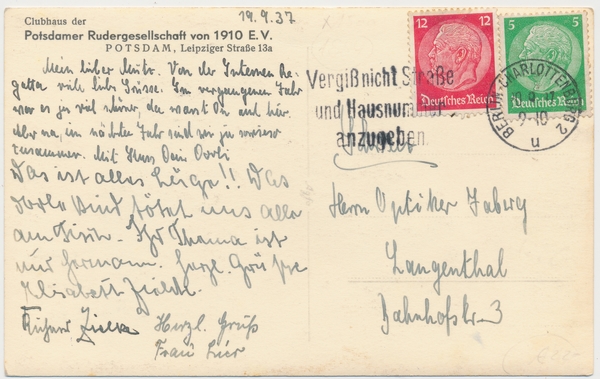 19.9.37
Clubhaus der
Potsdamer Rudergesellschaft von 1910 E.V.
POTSDAM, Leipziger Straße 13a
Mein lieber Von der Internen Re-
gatta viele liebe Grüsse. Im vergangenen Jahr
war es ja viel schöner, da warst Du auch hier.
Aber na, im nächsten Jahr sind wir ja sowieso
zusammen. Mit Kuss Dein
Das ist alles Lüge!! Das
Kind tötet uns alle
am Tisch. Ihr Thema ist
nur Hermann. Herzl. Grüsse
Elisabeth
Herzl. Gruß
Frau
12 12
Deutsches Reich
5 5
Deutsches Reich
Vergiß nicht Straße
und Hausnummer
anzugeben
BERLIN-CHARLOTTENBURG 2
9-10
u
Schweiz
Herrn Optiker Jaberg
Langenthal
Bahnhofstr. 3